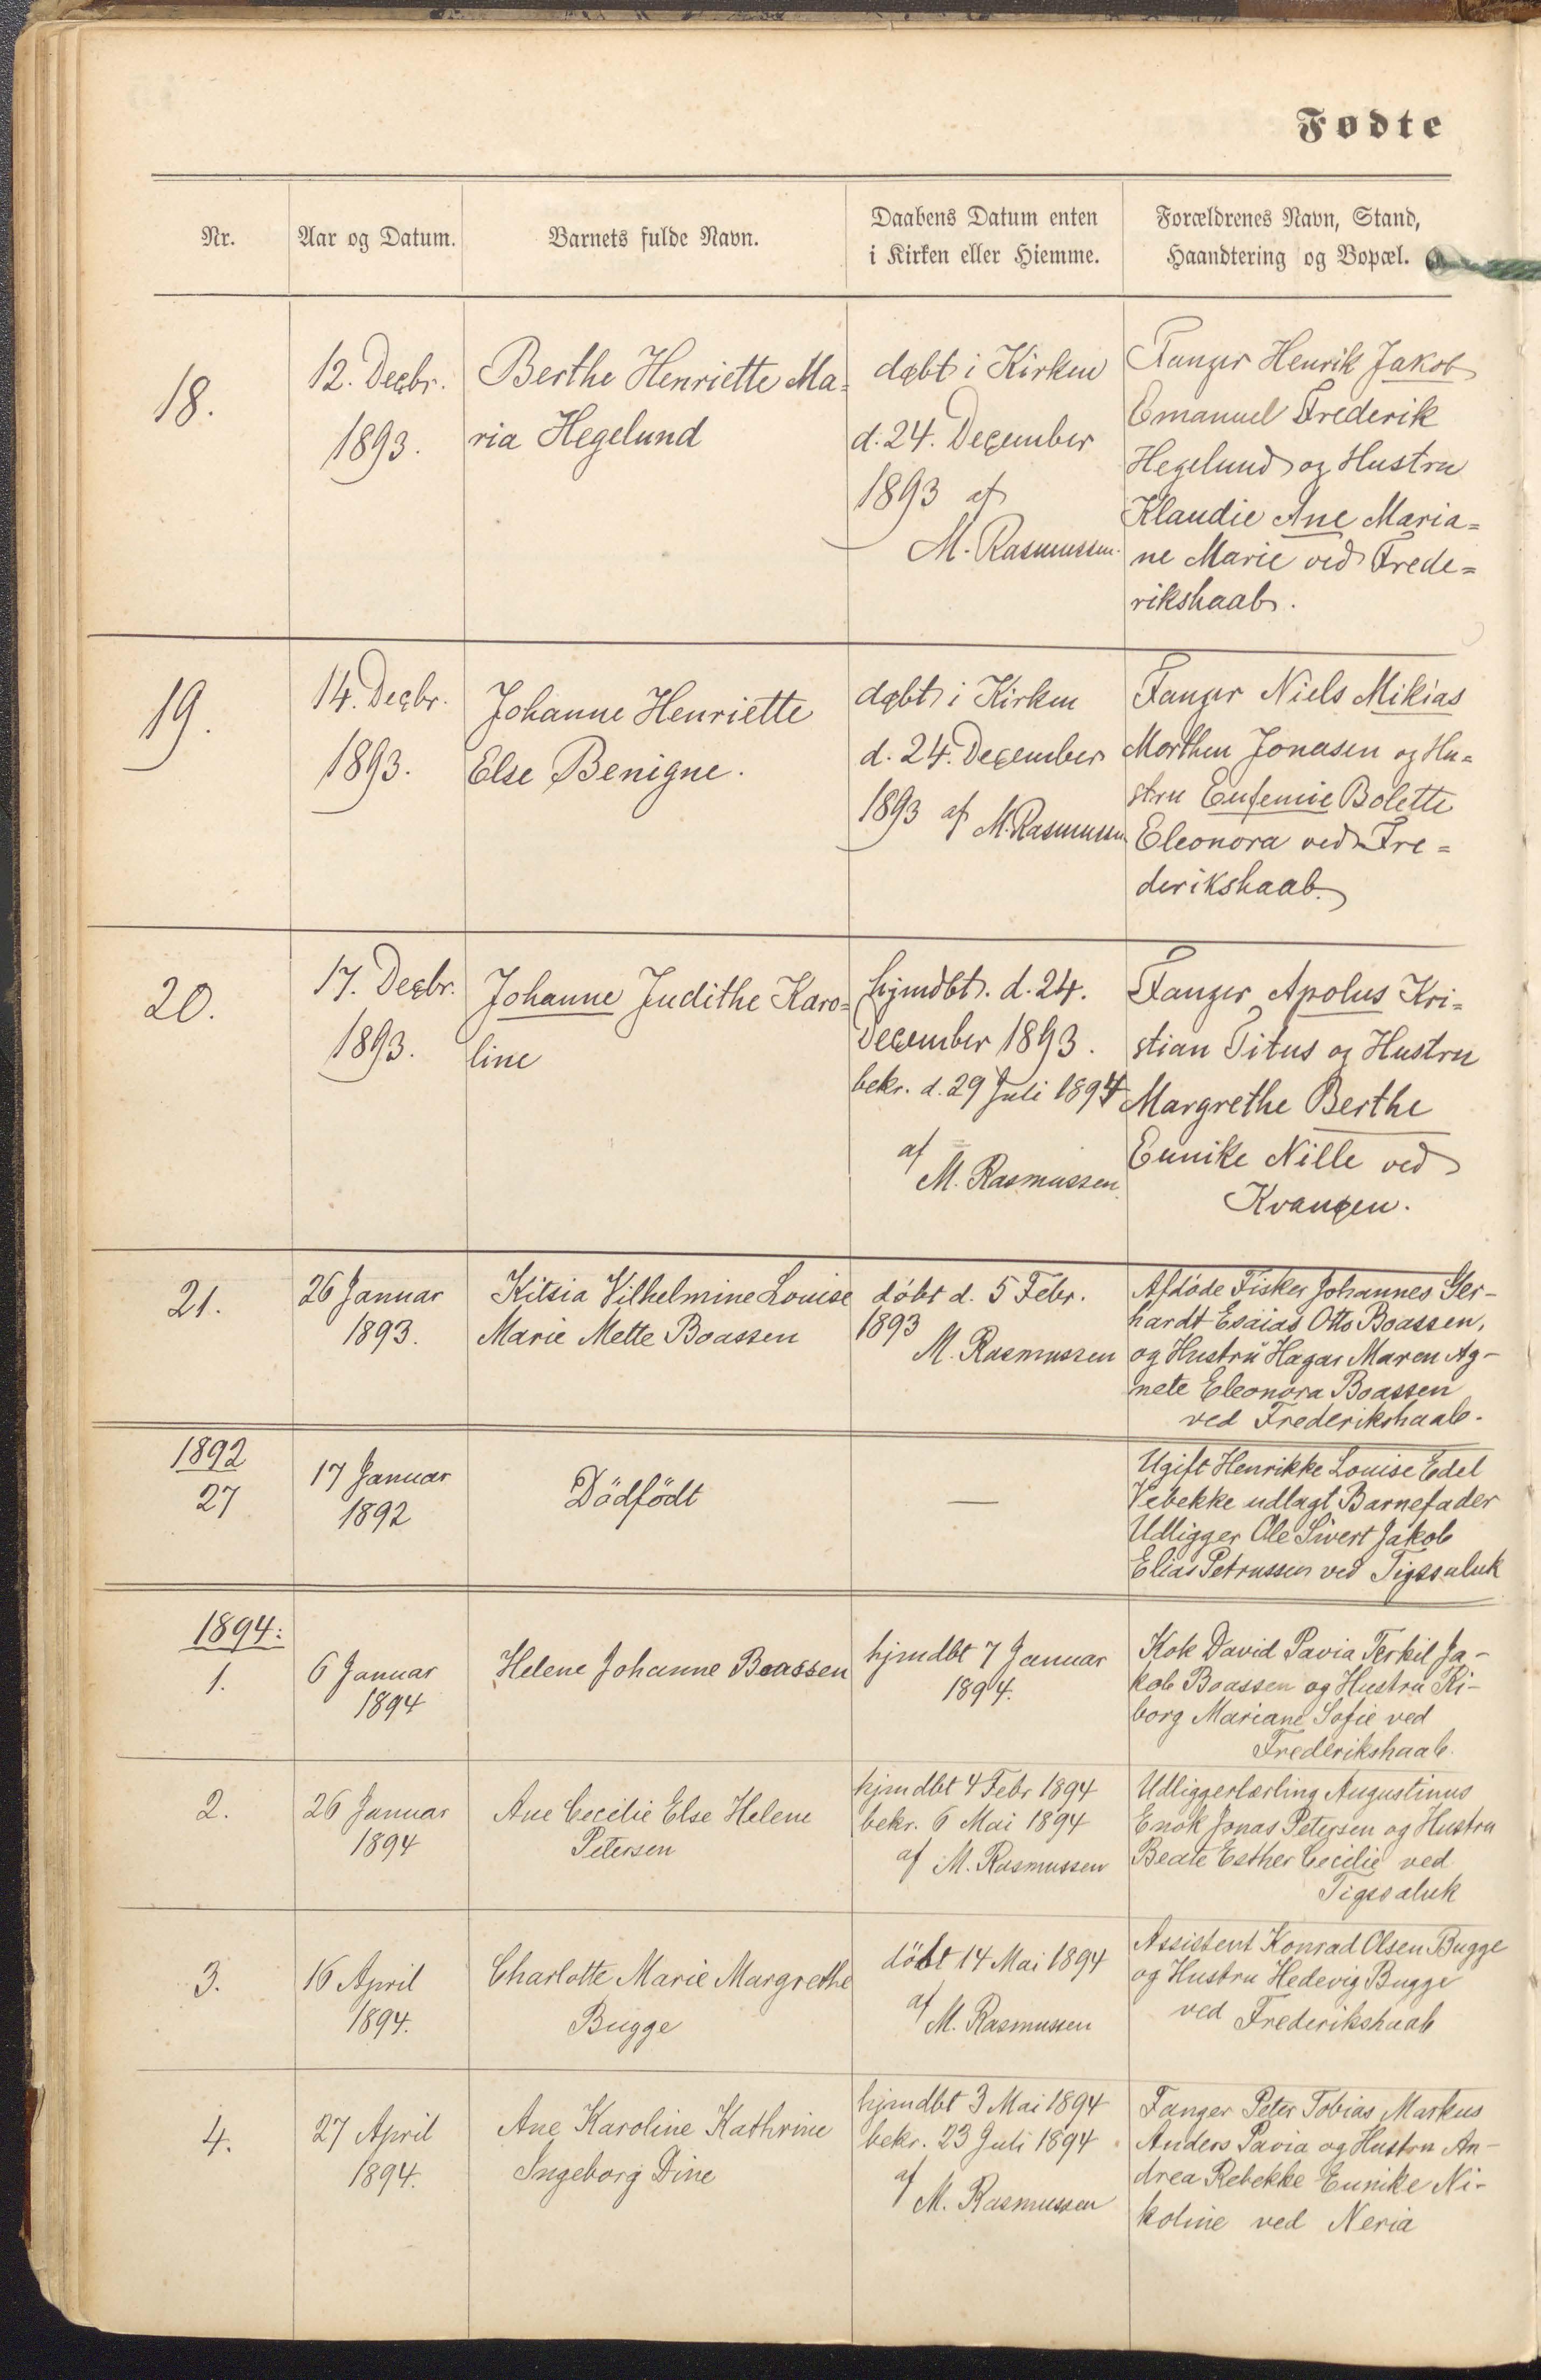 Fødte
Nr.
Aar og Datum.
Barnets fulde Navn.
Daabens Datum enten
i Kirken eller Hjemme.
Forældrenes Navn, Stand,
Haandtering og Bopæl.
18.
12. Decbr.
1893.
Berthe Henriette Ma=
ria Hegelund
døbt i Kirken
d. 24. December
1893 af
M. Rasmussen.
Fanger Henrik Jakob
Emanuel Frederik
Hegelund og Hustru
Klaudie Ane Maria=
ne Marie ved Frede=
rikshaab.
19.
14. Decbr.
1893.
Johanne Henriette
Else Benigne.
døbt i Kirken
d. 24. December
1893 af M. Rasmussen
Fanger Niels Mikias
Morthen Jonasen og Hu=
stru Eufemie Bolette
Eleonora ved Fre=
derikshaab.
20.
17. Decbr.
1893.
Johanne Judithe Karo=
line
hjmdbt. d. 24.
December 1893.
bekr. d. 29 Juli 1894
af
M. Rasmussen
Fanger Apolus Kri=
stian Titus og Hustru
Margrethe Berthe
Eunike Nille ved
Kvanøen.
21.
26 Januar
1893.
Kitsia Vilhelmine Louise
Marie Mette Boassen
döbt d. 5 Febr.
1893
M. Rasmussen
Afdøde Fisker Johannes Ger-
hardt Esaias Otto Boassen,
og Hustru Hagar Maren Ag-
nete Eleonora Boassen
ved Frederikshaab.
1892
27
17 Januar
1892
Dödfödt
—
Ugift Henrikke Louise Edel
Vebekke udlagt Barnefader
Udligger Ole Sivert Jakob
Elias Petrussen ved Tigssaluk
1894:
1.
6 Januar
1894
Helene Johanne Boassen
hjmdbt 7 Januar
1894.
Kok David Pavia Terkil Ja-
kob Boassen og Hustru Ki-
borg Mariane Sofie ved
Frederikshaab.
2.
26 Januar
1894
Ane Cecilie Else Helene
Petersen
hjmdbt 4 Febr 1894
bekr. 6 Mai 1894
af M. Rasmussen
Udliggerlærling Augustinus
Enok Jonas Petersen og Hustru
Beate Esther Cecilie ved
Tigssaluk
3.
16 April
1894.
Charlotte Marie Margrethe
Bugge
döbt 14 Mai 1894
af
M. Rasmussen
Assistent Konrad Olsen Bugge
og Hustru Hedevig Bugge
ved Frederikshaab
4.
27 April
1894.
Ane Karoline Kathrine
Ingeborg Dine
hjmdbt 3 Mai 1894
bekr. 23 Juli 1894
af
M. Rasmussen
Fanger Peter Tobias Markus
Anders Pavia og Hustru An-
drea Rebekke Eunike Ni-
koline ved Neria